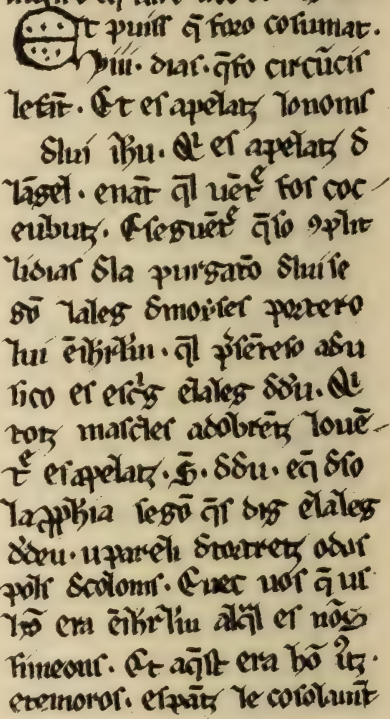 Et puiſſ q̄ foro coſumat.
Viii. dias. q̄ fo circūcis
lefāt. Et eſ apelatz lo noms
đ lui ih̄u. Ql eſ apelatz đ
lāgel. enāt q̄l uētͤ foſ coc
eubutz. E ſeguētͤ q̄ ſo ꝯplit
li dias đla purgato đlui ſe
gō la leg đ moiſes portero
lui ē ihrlm̄. q̄l p̄ſēteſo a du
ſico eſ eſcͥg ē la leg đ đu. Ql
totz maſcles adobrētz lo uē
tͤ eſ apelatz. S̄. đ đu. e q̄ đſo
la ꝓph̄ia ſegō q̄s dig ē la leg
đ deu. u pareh đ tortretz o dos
pols đ coloms. E uec uos q̄ us
hō era ē ihrlm̄ al q̄l eſ nōs
ſimeons. Et aq̄ſt era hō iͧtz.
e temoros. eſpātz le coſolamt